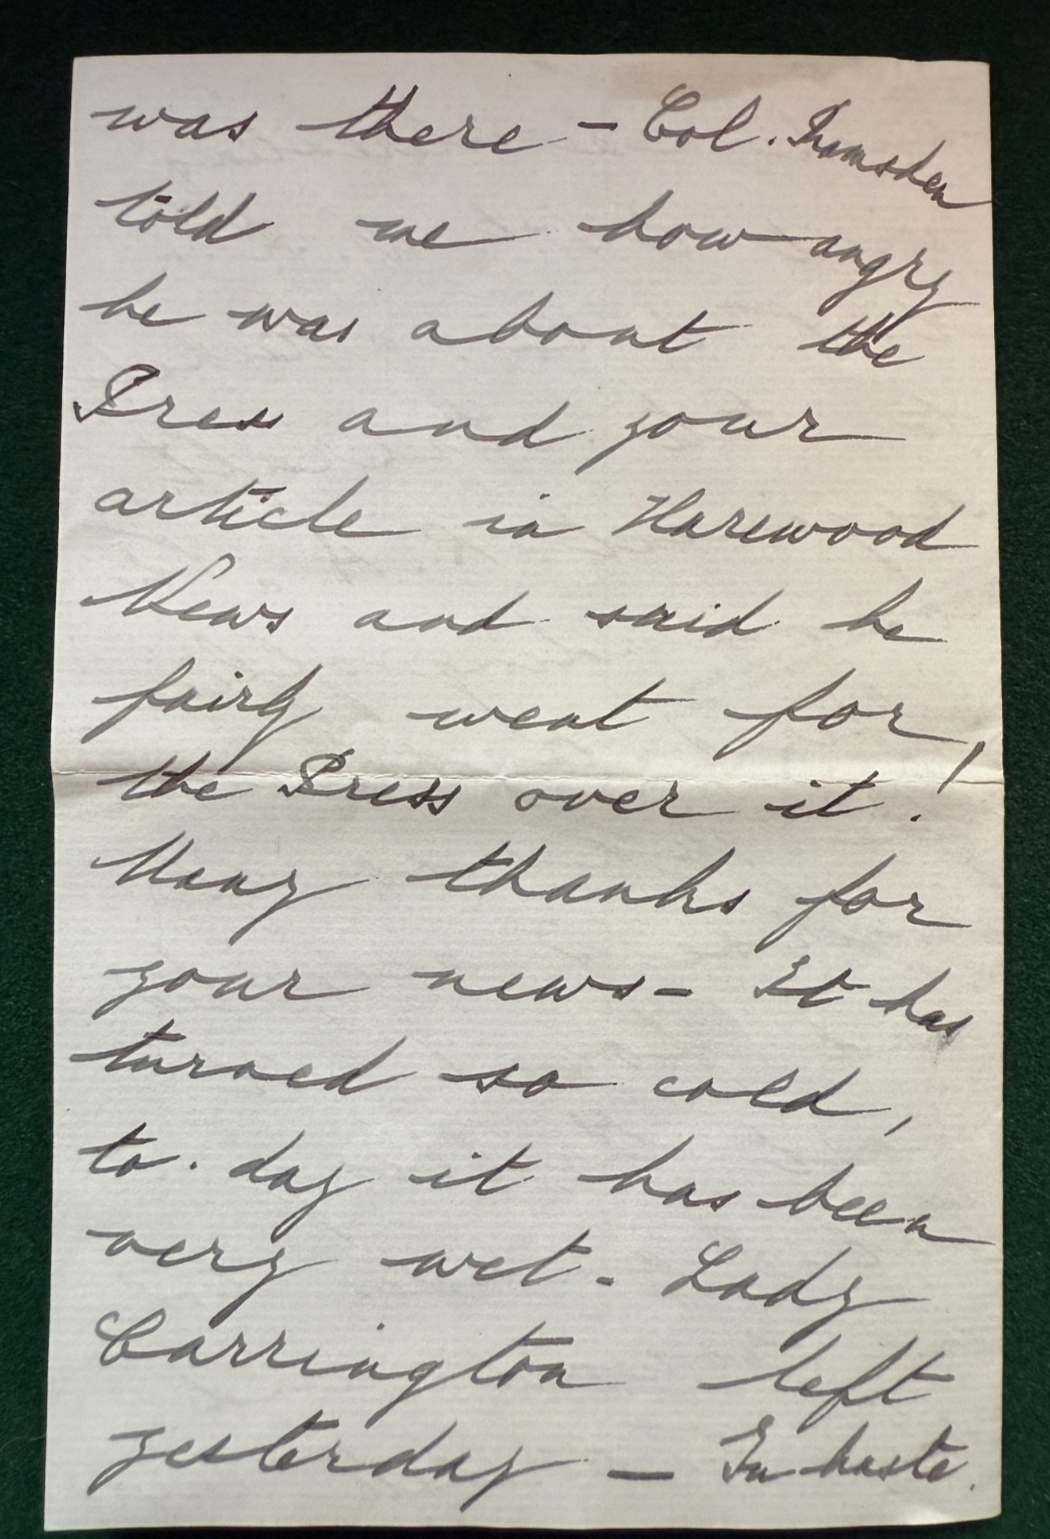 was there - Col.
told me how angry
he was about the
Press and your
article in Harewood
News and said he
fairly went for
the Press over it!
Many thanks for
your news - It has
turned so cold,
to.day it has been
very wet - Lady
Carrington left
yesterday - In haste.